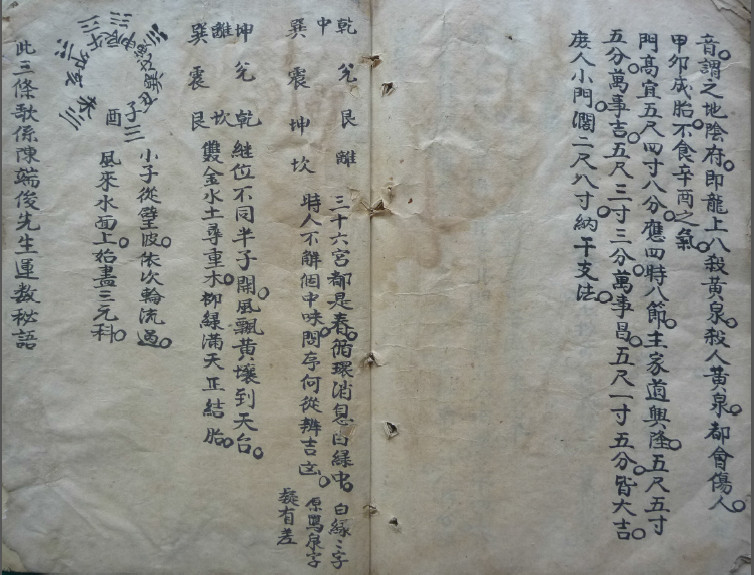 音謂之地陰府。即龍上八殺黃泉。殺人黃泉。都會傷人。
甲卯成胎。不食辛酉之氣。
門高宜五尺四寸八分。應四時八節。主家道興隆。五尺五寸
五分。萬事吉。五尺三寸三分。萬事昌。五尺一寸五分。皆大吉。
廢人小門。濶二尺八寸。納干支法。
乾 兌 艮 離 三十六宮都是春。循環消息白綠中。白綠二字
中 時人不解個中味。問存何從辨吉凶。原寫泉字
巽 震 坤 坎 疑有差
坤 兌 乾 繼位不同半子開。風飄黃壤到天台。
離 坎 雙金水土尋重木。柳綠滿天正結胎。
巽 震 艮
子 小子從壁波。依次輪流過。
酉 風來水面上。始盡三元科。
此三條歌係陳端俊先生運数秘語